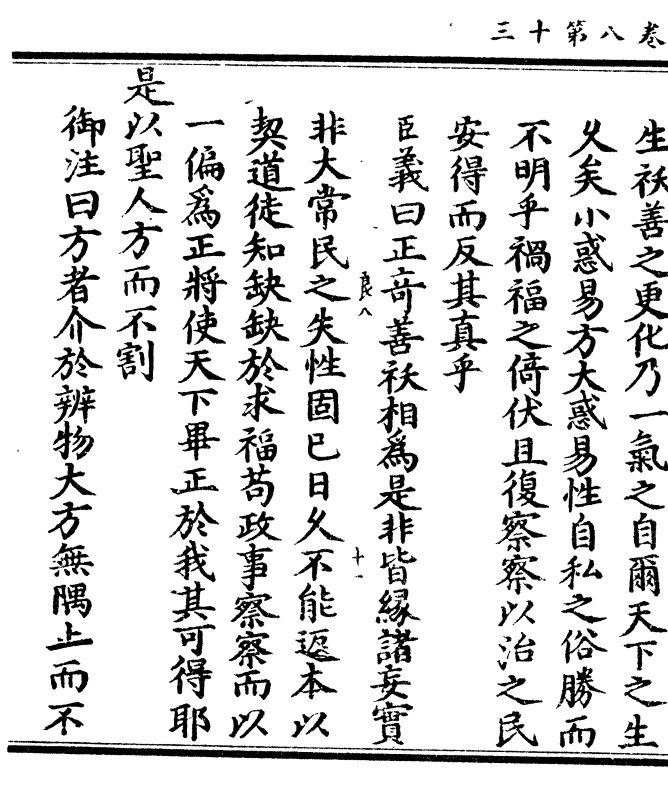 三十第八卷
生祅善之更化乃一氣之自爾天下之生
久矣小惑易方大惑易性自私之俗勝而
不明乎禍福之倚伏且復察察以治之民
安得而反其真乎
臣義曰正竒善祅相為是非皆緣諸妄實
良八
十一
非大常民之失性固已日久不能返本以
契道徒知缺缺於求福苟政事察察而以
一偏為正將使天下畢正於我其可得耶
是以聖人方而不割
御注曰方者介於辨物大方無隅止而不